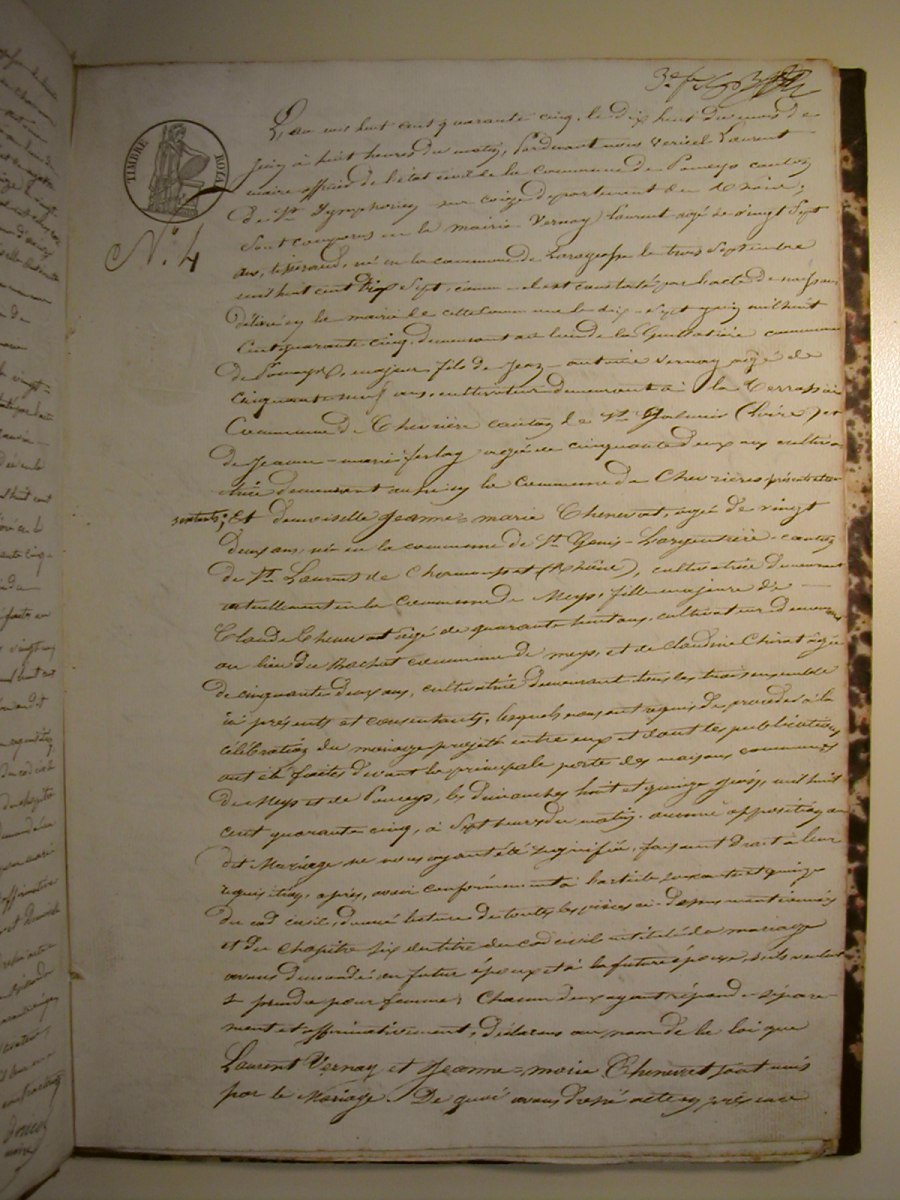 TIMBRE ROYAL
N.º 4
L'an mil huit cent quarante cinq, le dix huit du mois de
juin à huit heures du matin, Pardevant nous Laurent
maire officier de l'état civil de la commune de Pomeys canton
de St Symphorien sur coise département du Rhône;
sont comparus en la mairie Vernay Laurent agé de vingt sept
ans, tisserand, né en la commune de Larajasse le trois Septembre
mil huit cent dix Sept, comme il est constaté par l'acte de naissance
délivré en la mairie de cette commune le dix-sept juin mil huit
cent quarante cinq, demeurant au lieu de la commune
de Pomeys, majeur fils de Jean-antoine Vernay agé de
cinquante neuf ans, cultivateur demeurant à la
Commune de Chevrière canton de St Galmier (Loire) et
de Jeanne-marie ferlay agée de cinquante deux ans cultiva
trice demeurant aussi en la commune de Chevrières présents et con
sentants; Et demoiselle Jeanne-marie Chenevat, agée de vingt
deux ans, née en la commune de St Genis-Largentière canton
de St Laurent de Chamousset (Rhône), cultivatrice demeurant
actuellement en la Commune de Meys, fille majeure de
Claude Chenevat agé de quarante huit ans, cultivateur demeurant
au lieu du Rochat commune de meys, et de Claudine Chirat agée
de cinquante deux ans, cultivatrice demeurant tous les trois ensemble
ici présents et consentants, lesquels nous ont requis de procéder à la
célébration du mariage projeté entre eux et dont les publications
ont été faites devant la principale porte des maisons communes
de Meys et de Pomeys, les dimanches huit et quinze juin, mil huit
cent quarante cinq, à Sept heures du matin. aucune opposition au
dit Mariage ne nous ayant été signifiée, faisant droit à leur
réquisition, après, avoir conformément à l'article soixante et quinze
du cod civil, donné lecture de toutes les pièces ci-dessus mentionnées
et du chapitre six du titre du cod civil intitulé du mariage
avons demandé au futur époux et à la future épouse, s'ils veulent
se prendre pour femme; Chacun deux ayant répondu séparé-
ment et affirmativement, déclarons au nom de la loi que
Laurent Vernay et Jeanne-marie Chenevat sont unis
par le Mariage. De quoi avons dressé acte en présence